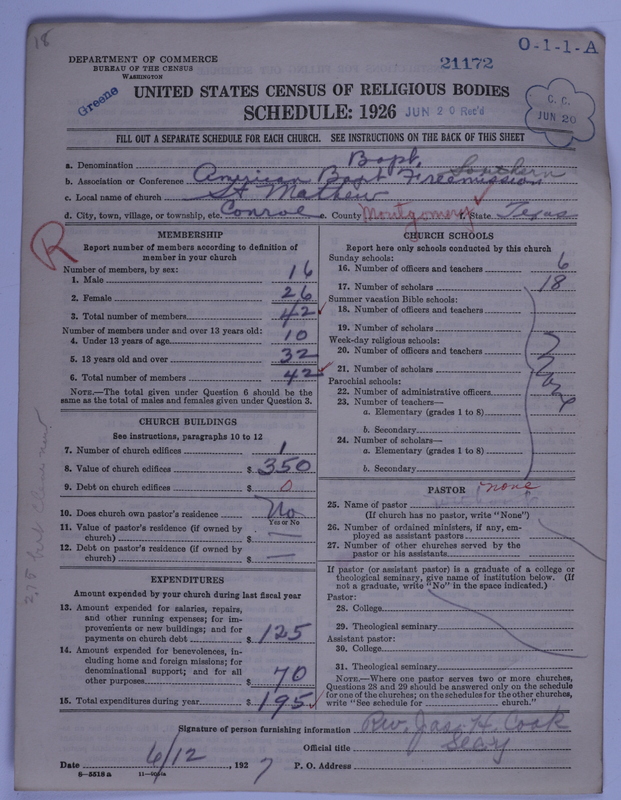 18
DEPARTMENT OF COMMERCE
BUREAU OF THE CENSUS
WASHINGTON
21172
O-1-1-A
Greene
UNITED STATES CENSUS OF RELIGIOUS BODIES
SCHEDULE: 1926
JUN 20 Rec'd
C. C.
JUN 20
FILL OUT A SEPARATE SCHEDULE FOR EACH CHURCH. SEE INSTRUCTIONS ON THE BACK OF THIS SHEET
a. Denomination Bapt.
Southern
b. Association or Conference American Bapt Freemission
c. Local name of church St. Mathew
d. City, town, village, or township, etc. Conroe e. County Montgomery f. State Texas
R
MEMBERSHIP
Report number of members according to definition of
member in your church
Number of members, by sex:
1. Male 16
2. Female 26
3. Total number of members 42
Number of members under and over 13 years old:
4. Under 13 years of age 10
5. 13 years old and over 32
6. Total number of members 42
NOTE.—The total given under Question 6 should be the
same as the total of males and females given under Question 3.
CHURCH BUILDINGS
See instructions, paragraphs 10 to 12
7. Number of church edifices 1
8. Value of church edifices $ 350
9. Debt on church edifices $ 0
10. Does church own pastor's residence No
Yes or No
11. Value of pastor's residence (if owned by
church) $ —
12. Debt on pastor's residence (if owned by
church) $ —
EXPENDITURES
Amount expended by your church during last fiscal year
13. Amount expended for salaries, repairs,
and other running expenses; for im-
provements or new buildings; and for
payments on church debt $ 125
14. Amount expended for benevolences, in-
cluding home and foreign missions; for
denominational support; and for all
other purposes $ 70
15. Total expenditures during year $ 195
CHURCH SCHOOLS
Report here only schools conducted by this church
Sunday schools:
16. Number of officers and teachers 6
17. Number of scholars 18
Summer vacation Bible schools:
18. Number of officers and teachers
19. Number of scholars
Week-day religious schools:
20. Number of officers and teachers
21. Number of scholars
Parochial schools:
22. Number of administrative officers
23. Number of teachers—
a. Elementary (grades 1 to 8)
b. Secondary
24. Number of scholars—
a. Elementary (grades 1 to 8)
b. Secondary
PASTOR none
25. Name of pastor
(If church has no pastor, write "None")
26. Number of ordained ministers, if any, em-
ployed as assistant pastors
27. Number of other churches served by the
pastor or his assistants
If pastor (or assistant pastor) is a graduate of a college or
theological seminary, give name of institution below. (If
not a graduate, write "No" in the space indicated.)
Pastor:
28. College
29. Theological seminary
Assistant pastor:
30. College
31. Theological seminary
NOTE.—Where one pastor serves two or more churches,
Questions 28 and 29 should be answered only on the schedule
for one of the churches; on the schedules for the other churches,
write "See schedule for church."
Signature of person furnishing information Rev. Jas. H. Cook
Official title Secy
Date 6/12, 1927 P. O. Address
8-5518a